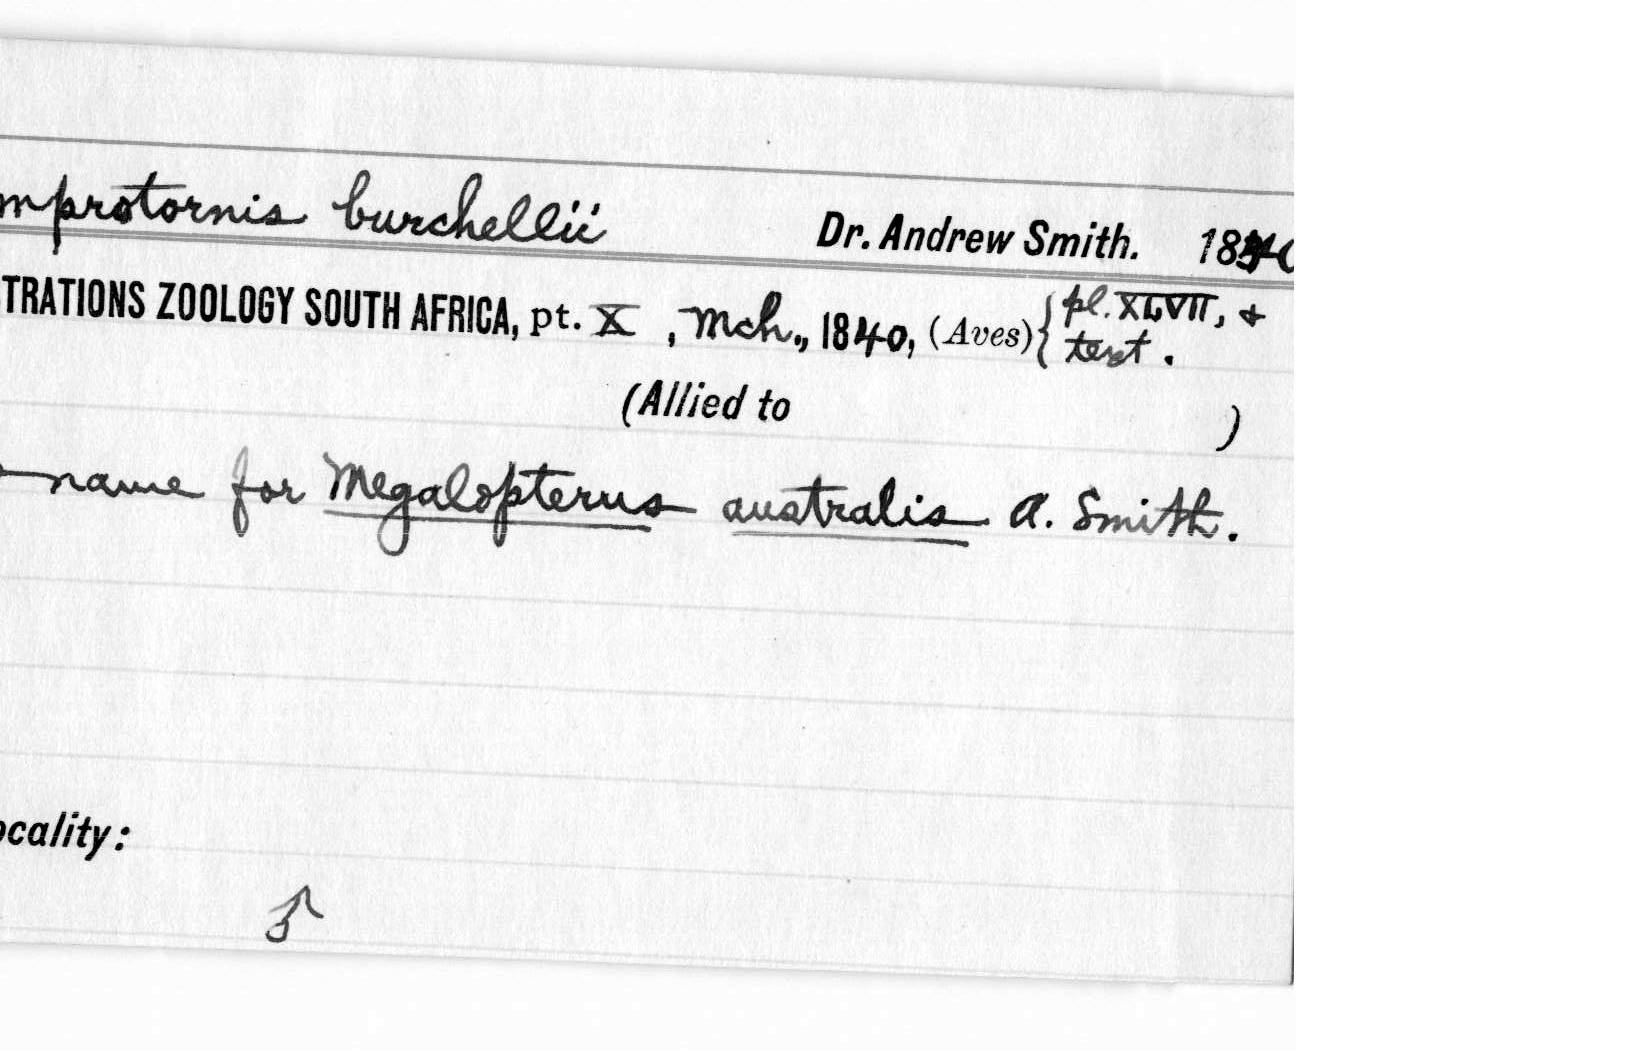 mprotornis burchellii Dr. Andrew Smith. 1840
TRATIONS ZOOLOGY SOUTH AFRICA, pt. X, Mch., 1840, (Aves) { pl. XLVII, &
text.
(Allied to )
name for Megalopterus australis A. Smith.
ocality:
♂